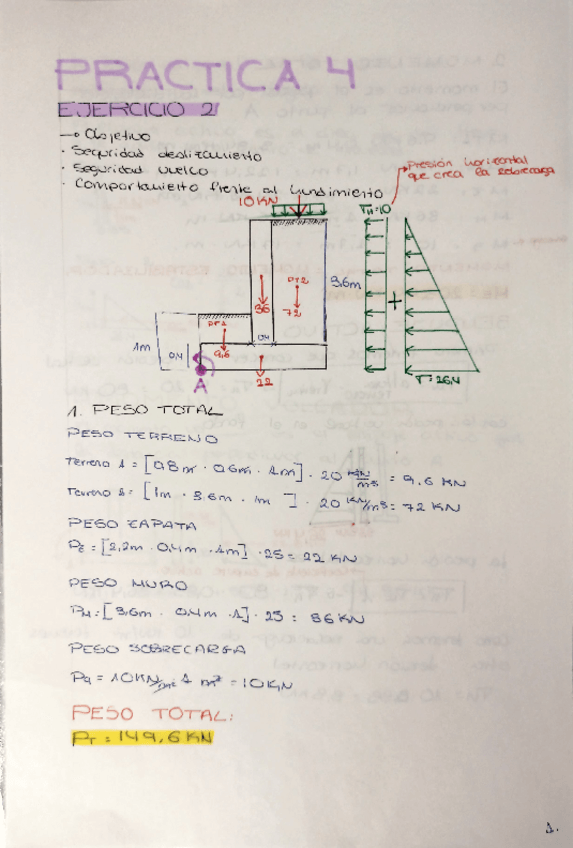 PRACTICA 4
EJERCICIO 2
→ Objetivo
· Seguridad deslizamiento
· Seguridad vuelco
· Comportamiento frente al hundimiento
Presión horizontal
que crea la sobrecarga
10KN
TH=10
3,6m
PT2
36
72
PT1
1m
0,4
9,6
0,4
22
A
+
T=26,4
1. PESO TOTAL
PESO TERRENO
Terreno 1 = [0,8m · 0,6m · 1m] · 20 KN/m³ = 9,6 KN
Terreno 2 = [1m · 3,6m · 1m ] · 20 KN/m³ = 72 KN
PESO ZAPATA
PZ = [2,2m · 0,4m · 1m] · 25 = 22 KN
PESO MURO
PM = [3,6m · 0,4m · 1] · 25 = 36 KN
PESO SOBRECARGA
Pq = 10KN/m² · 1 m² = 10KN
PESO TOTAL:
PT = 149,6 KN
1.